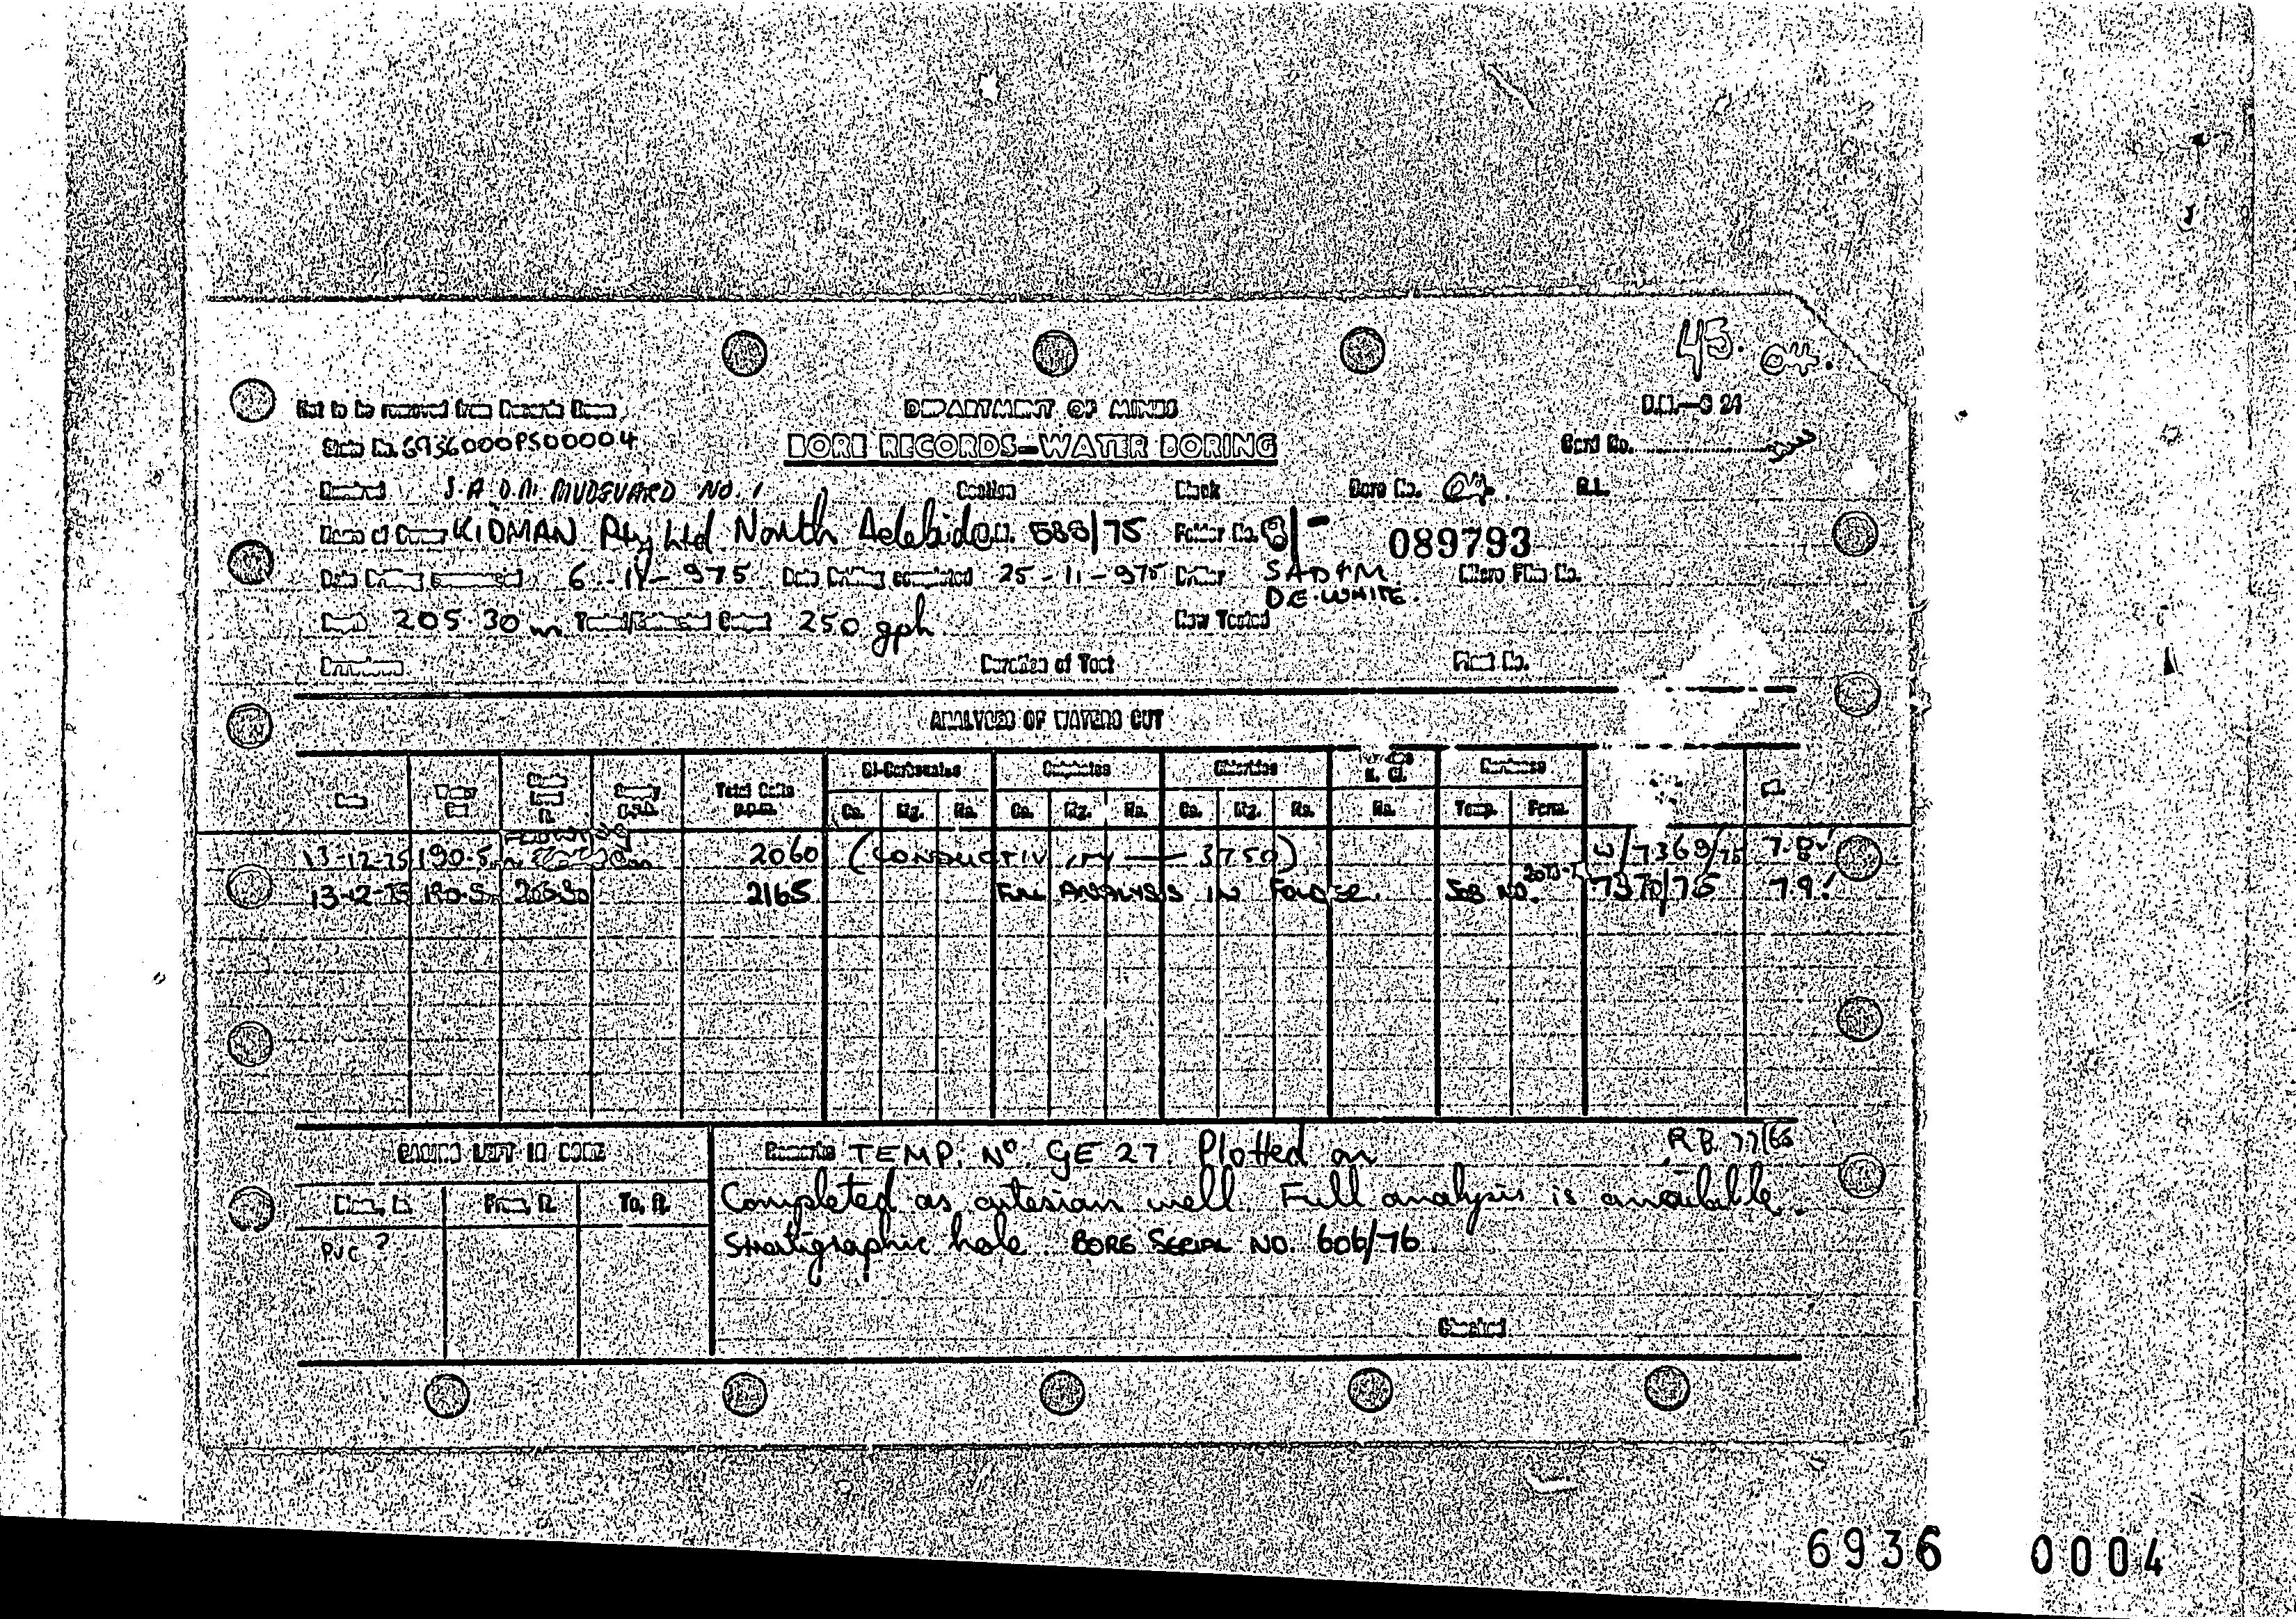 45. 04.
Not to be removed from Records Room
DEPARTMENT OF MINES
D.M.—G 24
6936000PS00004
BORE RECORDS—WATER BORING
Card No.
Hundred S.A.D.M. MUDGUARD NO. 1 Section Block Bore No. 04. R.L.
Name of Owner KIDMAN Pty Ltd North Adelaide D.M. 588/75 Folder No. 8/- 089793
Date Drilling commenced 6-11-975 Date Drilling completed 25-11-975 Driller SADM Micro Film No.
D.E. WHITE.
Depth 205.30 m Tested/Estimated Output 250 gph How Tested
Duration of Test Plant No.
ANALYSES OF WATERS CUT
Bi-Carbonates Sulphates Chlorides Hardness
Date Total Salts p.p.m. Ca. Mg. Na. Ca. Mg. Na. Ca. Mg. Na. Na. Temp. Perm.
FLOWING
13-12-75 190.5m 2060 (CONDUCTIVITY — 3750) W/7369/75 7.8
13-12-75 190.5m 2165 FULL ANALYSIS IN FOLDER. JOB NO. 7370/75 7.9
CASING LEFT IN BORE
Remarks TEMP. No. GE 27. Plotted on RB 77/66
Diam. In. From, ft. To, ft.
Completed as artesian well. Full analysis is available.
PVC ?
Stratigraphic hole. BORE SERIAL NO. 606/76.
Checked
6936 0004